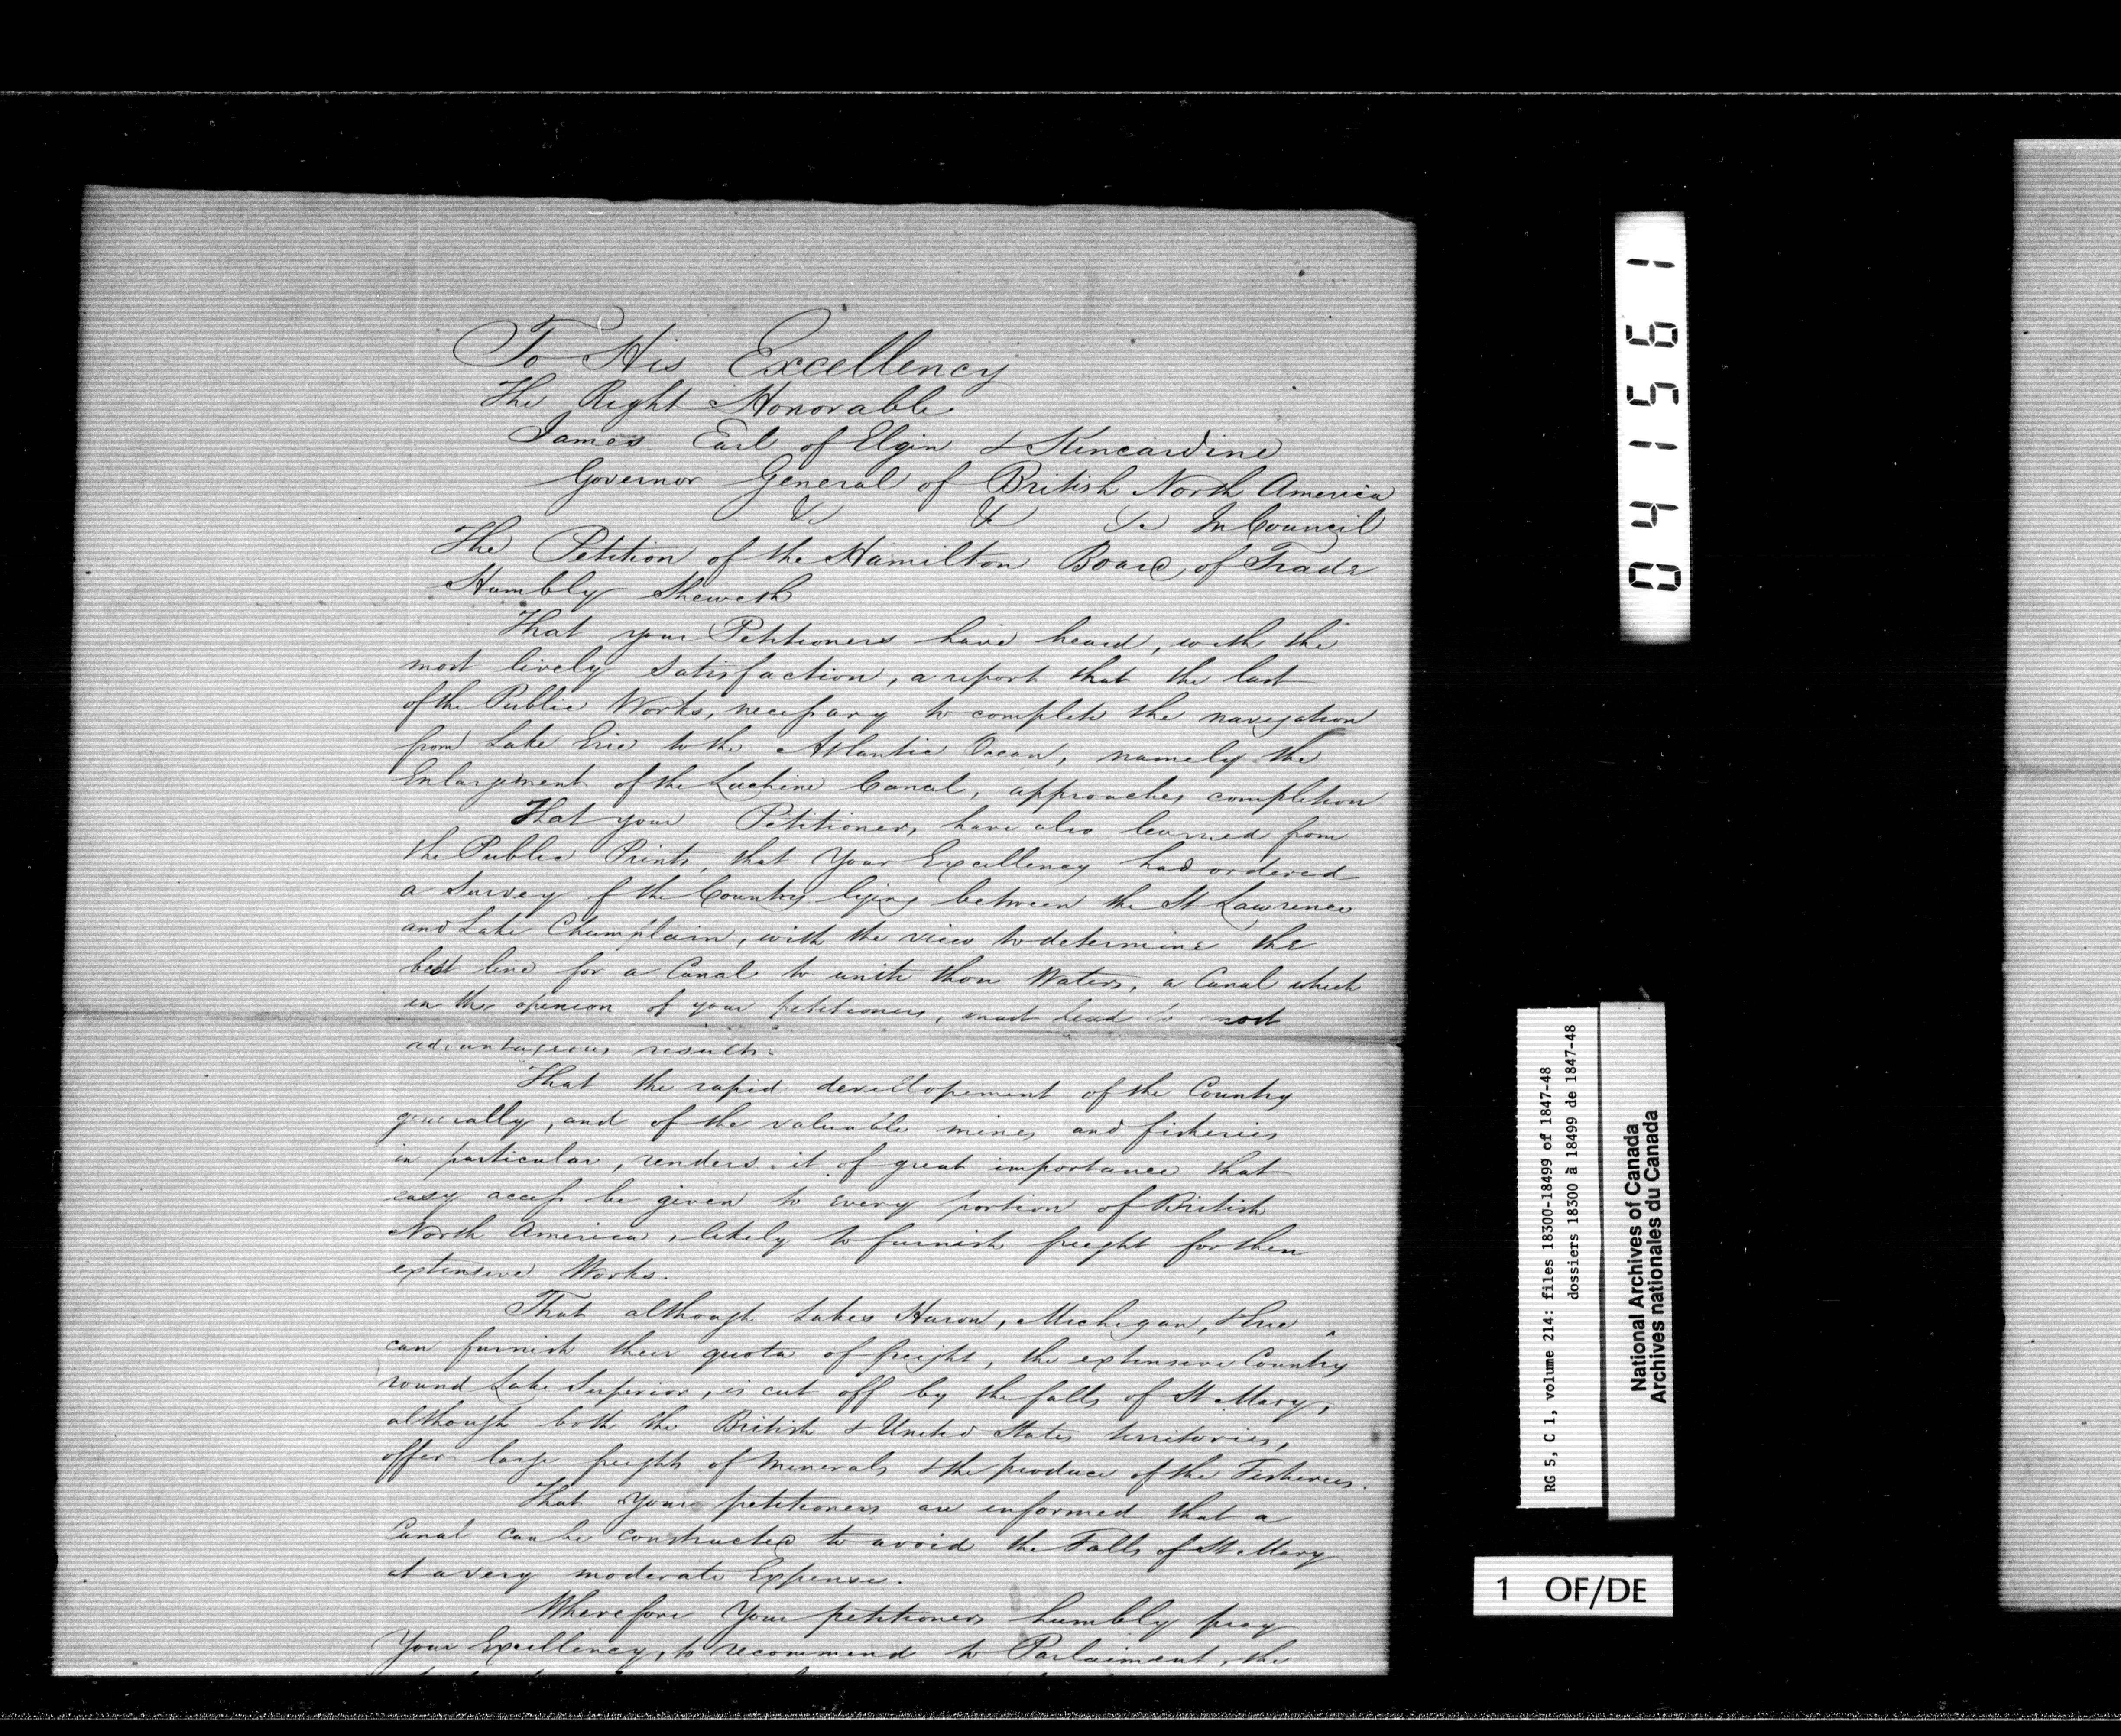 To His Excellency
The Right Honorable
James Earl of Elgin & Kincardine
Governor General of British North America
&c &c &c In Council
The Petition of the Hamilton Board of Trade
Humbly Sheweth
That your Petitioners have heard, with the
most lively satisfaction, a report that the last
of the Public Works, necessary to complete the navigation
from Lake Erie to the Atlantic Ocean, namely the
Enlargement of the Lachine Canal, approaches completion
That your Petitioners have also learned from
the Public Prints, that Your Excellency had ordered
a Survey of the Country lying between the St Lawrence
and Lake Champlain, with the view to determine the
best line for a Canal to unite those Waters, a Canal which
in the opinion of your petitioners, must lead to most
advantageous results.
That the rapid devellopement of the Country
generally, and of the valuable mines and fisheries
in particular, renders it of great importance that
easy access be given to every portion of British
North America, likely to furnish freight for these
extensive Works.
That although Lakes Huron, Michigan, & Erie
can furnish their quota of freight, the extensive Country
round Lake Superior, is cut off by the falls of St Mary,
although both the British & United States territories,
offer large freights of Minerals & the produce of the Fisheries.
That your petitioners are informed that a
Canal can be constructed to avoid the Falls of St Mary
at a very moderate Expense.
Wherefore Your petitioners humbly pray
Your Excellency, to recommend to Parlaiment, the
041561
RG 5, C 1, volume 214: files 18300-18499 of 1847-48
dossiers 18300 à 18499 de 1847-48
National Archives of Canada
Archives nationales du Canada
1 OF/DE